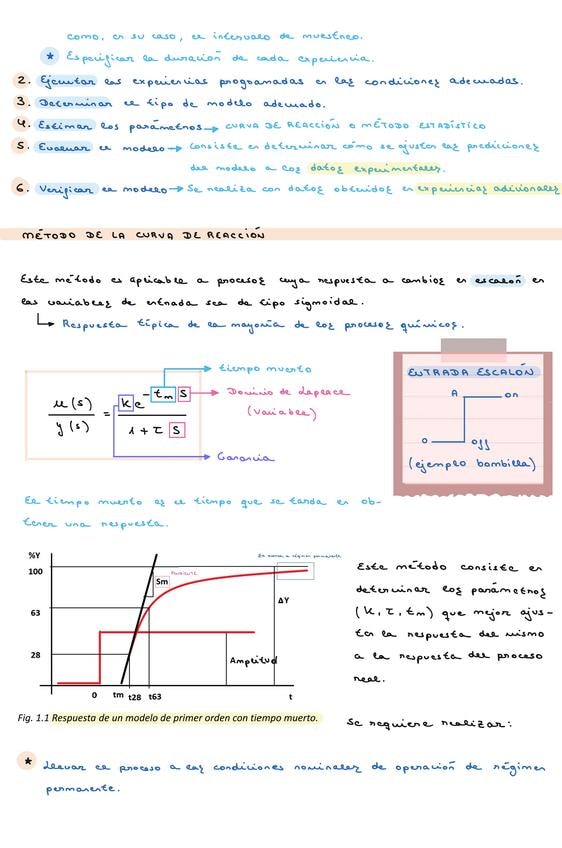 como, en su caso, el intervalo de muestreo.
* Especificar la duración de cada experiencia.
2. Ejecutar las experiencias programadas en las condiciones adecuadas.
3. Determinar el tipo de modelo adecuado.
4. Estimar los parámetros → CURVA DE REACCIÓN O MÉTODO ESTADÍSTICO
5. Evaluar el modelo → Consiste en determinar cómo se ajustan las predicciones
del modelo a los datos experimentales.
6. Verificar el modelo → Se realiza con datos obtenidos en experiencias adicionales
MÉTODO DE LA CURVA DE REACCIÓN
Este método es aplicable a procesos cuya respuesta a cambios en escalón en
las variables de entrada sea de tipo sigmoidal.
↳ Respuesta típica de la mayoría de los procesos químicos.
ENTRADA ESCALÓN
A on
0 off
(ejemplo bombilla)
tiempo muerto
Dominio de Laplace
(variable)
u(s) / y(s) = k e^-tm s / 1 + τ s
Ganancia
El tiempo muerto es el tiempo que se tarda en ob-
tener una respuesta.
%Y
100
63
28
Sm
Pendiente
ΔY
Amplitud
0 tm t28 t63 t
Fig. 1.1 Respuesta de un modelo de primer orden con tiempo muerto.
Este método consiste en
determinar los parámetros
(k, τ, tm) que mejor ajus-
tan la respuesta del mismo
a la respuesta del proceso
real.
Se requiere realizar:
* Llevar el proceso a las condiciones nominales de operación de régimen
permanente.